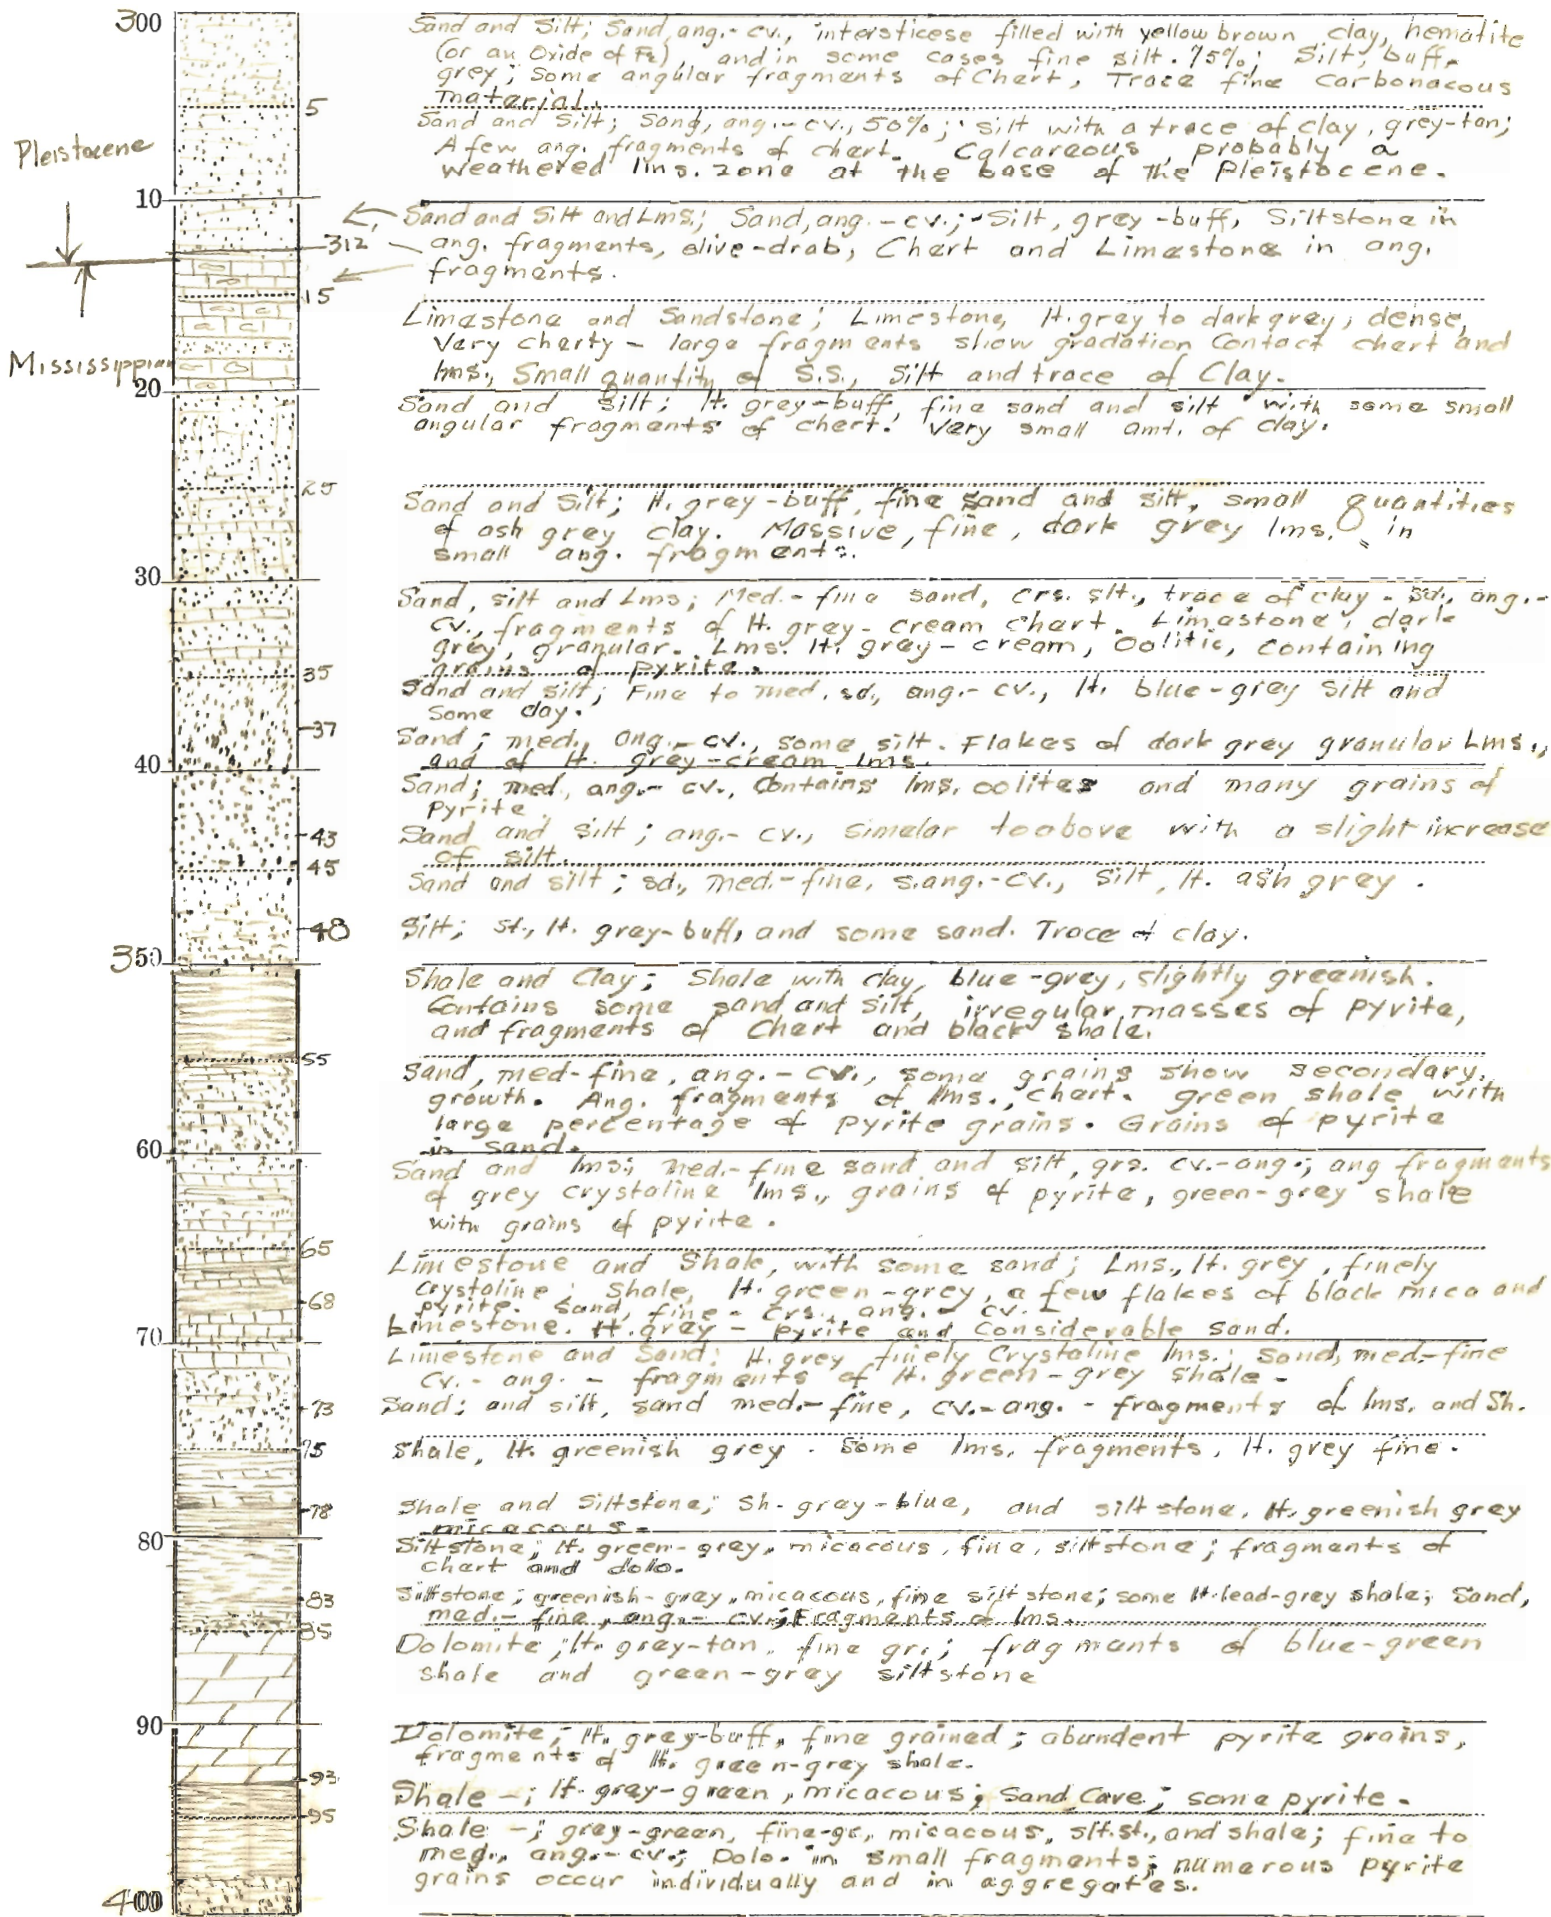 300
Sand and Silt; Sand, ang.- cv., intersticese filled with yellow brown clay, hematite
(or an Oxide of Fe), and in some cases fine silt. 75%; Silt, buff,
grey; Some angular fragments of Chert, Trace fine carbonacous
material.
5
Sand and Silt; Sand, ang.- cv., 50%; silt with a trace of clay, grey-tan;
A few ang. fragments of chert. Calcareous, probably a
weathered lms. zone at the base of the Pleistocene.
Pleistocene
10
Sand and Silt and Lms; Sand, ang.- cv.; Silt, grey-buff, Siltstone in
312
ang. fragments, olive-drab, Chert and Limestone in ang.
fragments.
15
Limestone and Sandstone; Limestone, lt. gray to dark gray, dense,
Very cherty - large fragments show gradation Contact chert and
lms., Small quantity of S.S., Silt and trace of Clay.
Mississippian
20
Sand and silt; lt. grey-buff, fine sand and silt with some small
angular fragments of chert. Very small amt. of clay.
25
Sand and Silt; lt. grey-buff, fine sand and silt, small quantities
of ash grey clay. Massive, fine, dark grey lms. in
small ang. fragments.
30
Sand, silt and Lms; Med.- fine sand, crs. slt., trace of clay - sd., ang.-
cv., fragments of lt. grey-cream chert. Limestone, dark
grey, granular. Lms. lt. grey-cream, Oolitic, containing
grains of pyrite.
35
Sand and silt; Fine to med. sd., ang.- cv., lt. blue-grey silt and
some clay.
37
Sand; med., ang.- cv., some silt. Flakes of dark grey granular Lms.,
and of lt. grey-cream lms.
40
Sand; med., ang.- cv., Contains lms. oolites and many grains of
pyrite.
43
Sand and silt; ang.- cv., simelar to above with a slight increase
of silt.
45
Sand and silt; sd., med.-fine, s.ang.-cv., Silt, lt. ash grey.
48
Silt; st., lt. gray-buff, and some sand. Trace of clay.
350
Shale and Clay; Shale with clay, blue-grey, slightly greenish.
Contains some sand and silt, irregular masses of pyrite,
and fragments of Chert and black shale.
55
Sand, med-fine, ang.- cv., some grains show secondary
growth. Ang. fragments of lms., chert. green shale with
large percentage of pyrite grains. Grains of pyrite
in sand.
60
Sand and lms; med.-fine sand and silt, grs. cv.-ang.; ang fragments
of grey crystaline lms., grains of pyrite, green-grey shale
with grains of pyrite.
65
Limestone and Shale, with some sand; Lms., lt. grey, finely
crystaline; Shale, lt. green-grey, a few flakes of black mica and
pyrite. Sand, fine - crs., ang. - cv. -
68
Limestone. lt. gray - pyrite and Considerable sand.
70
Limestone and Sand: lt. grey finely Crystaline lms.; Sand, med.-fine
cv.- ang. - fragments of lt. green-grey shale -
73
Sand; and silt, sand med.-fine, cv.-ang. - fragments of lms. and Sh.
75
Shale, lt. greenish grey. Some lms. fragments, lt. grey fine.
78
Shale and Siltstone; Sh- gray-blue, and siltstone, lt. greenish grey
micacous-
80
Siltstone; lt. green-gray, micacous, fine, siltstone; fragments of
chert and dolo.
83
Siltstone; greenish-gray, micacous, fine siltstone; some lt. lead-grey shale; Sand,
med.- fine, ang.- cv.; Fragments of lms.
85
Dolomite; lt. gray-tan, fine gr.; fragments of blue-green
shale and green-gray siltstone
90
Dolomite; lt. grey-buff, fine grained; abundent pyrite grains,
fragments of lt. green-grey shale.
93
Shale -; lt. gray-green, micacous; Sand, Cave; some pyrite.
95
Shale -; gray-green, fine-gr., micacous, slt.st., and shale; fine to
med., ang.- cv.; Dolo. in small fragments; numerous pyrite
grains occur individually and in aggregates.
400